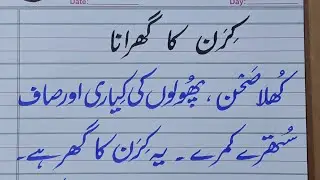 Date: Day:
کِرَن کا گھرانا
کُھلا صَحْن ، پھُولوں کی کِیاری اور صاف
سُتھرے کمرے ۔ یہ کِرَن کا گھر ہے ۔